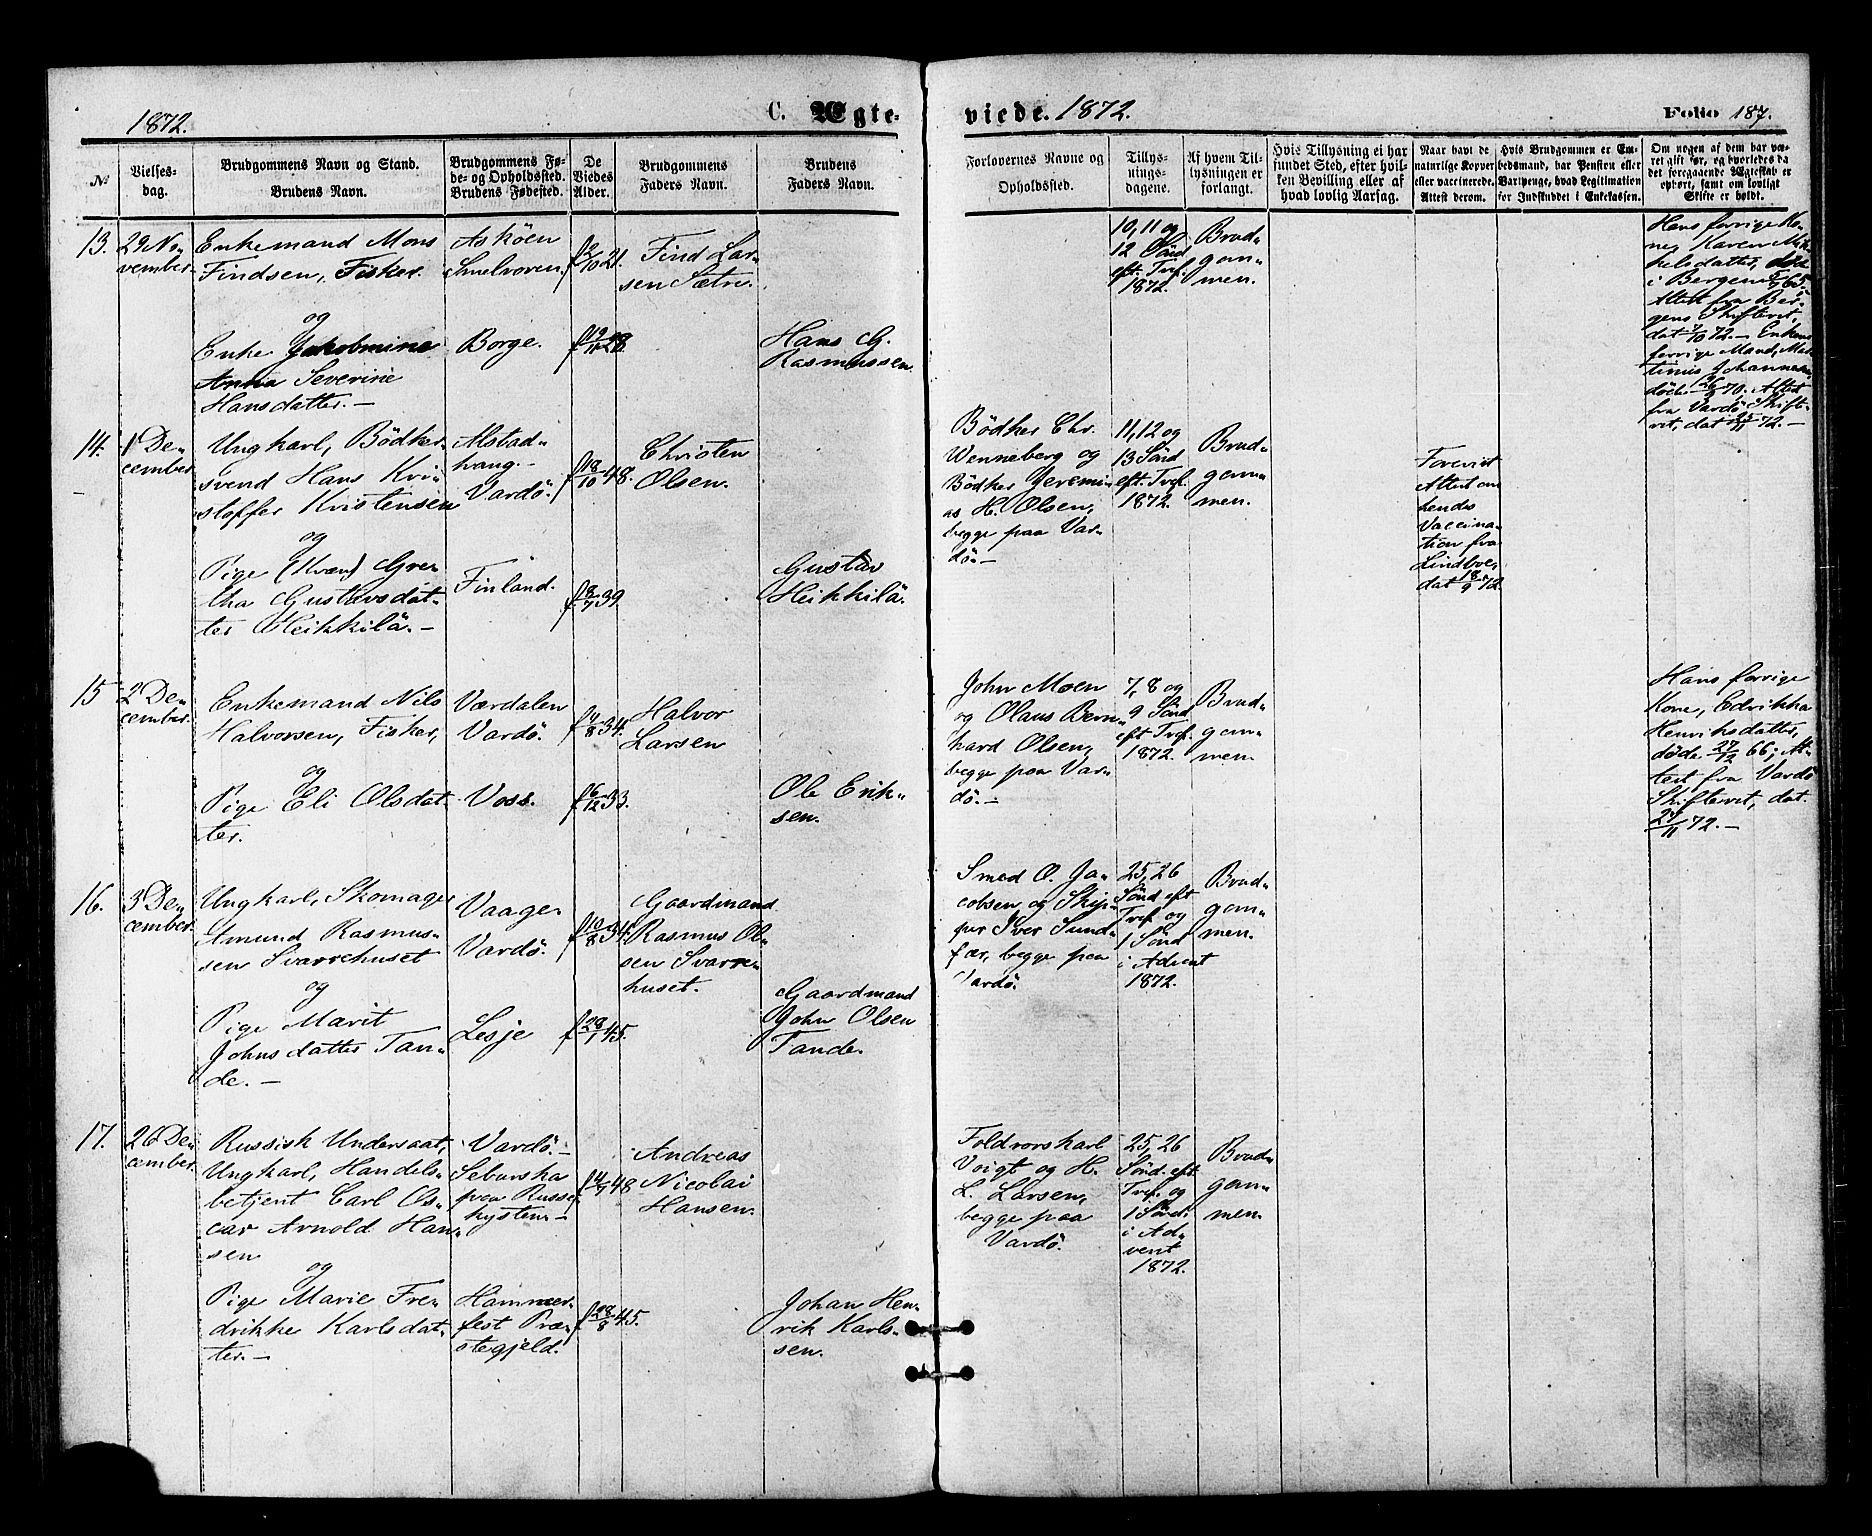 1872.
C. Ægte-
viede. 1872.
Folio 187.
No
Vielses-
dag.
Brudgommens Navn og Stand.
Brudens Navn.
Brudgommens Fø-
de- og Opholdssted.
Brudens Fødested.
De
Viedes
Alder.
Brudgommens
Faders Navn.
Brudens
Faders Navn.
Forlovernes Navne og
Opholdssted.
Tillys-
nings-
dagene.
Af hvem Til-
lysningen er
forlangt.
Hvis Tillysning ei har
fundet Sted, efter hvil-
ken Bevilling eller af
hvad lovlig Aarsag.
Naar havt de
naturlige Kopper
eller vaccinerede.
Attest derom.
Hvis Brudgommen er Em-
bedsmand, har Pension eller
Vartpenge, hvad Legitimation
for Indskuddet i Enkekassen.
Om nogen af dem har væ-
ret gift før, og hvorledes da
det foregaaende Ægteskab er
ophørt, samt om lovligt
Skifte er holdt.
13.
29 No-
vember.
Enkemand Mons
Findsen, Fisker.
og
Enke Jakobmine
Anna Severine
Hansdatter. —
Askøen
Smelvoren.
Borge.
f 2/10 21.
f 19/11 28.
Find Lar-
sen Sætre.
Hans G.
Rasmussen.
10, 11 og
12 Sönd
eft. Tref.
1872.
Brud-
gom-
men.
Hans forrige Ko-
ne, Karen Mik-
kelsdatter, död
i Bergen 65;
Attest fra Ber-
gens Skifteret,
dat 72. — Enkens
forrige Mand, Mar-
tinus Johannesen,
döde 70. Attest
fra Vardö Skift-
ret, dat 72. —
14.
1 De-
cember
Ungkarl, Bödker-
svend Hans Kri-
stoffer Kristensen
og
Pige (Kvæn) Gre-
tha Gustavsdat-
ter Heikkilä. —
Alstad-
haug. -
Vardö.
Finland.
f 18/10 48.
f 8/7 39.
Christen
Olsen.
Gustav
Heikkilä.
Bödker Chr.
Wenneberg og
Bödker Jeremi-
as H. Olsen,
begge paa Var-
dö. —
11, 12 og
13 Sönd
eft. Tref.
1872.
Brud-
gom-
men.
Forevist
Attest om
hendes
Vaccina-
tion fra
Lindboe,
dat 18/9 72.
15
2 De-
cember.
Enkemand Nils
Halvorsen, Fisker,
og
Pige Eli Olsdat-
ter.
Værdalen
Vardö.
Voss.
f 4/8 34.
f 6/12 33.
Halvor
Larsen
Ole Erik-
sen.
John Moen
og Olaus Bern-
hard Olsen,
begge paa Var-
dö. —
7, 8 og
9 Sönd
eft Tref.
1872.
Brud-
gom-
men.
Hans forrige
Kone, Edvikka
Henriksdatter,
döde 27/12 66; At-
test fra Vardö
Skifteret, dat.
27/11 72. —
16.
3 De-
cember.
Ungkarl, Skomager
Amund Rasmus-
sen Svarrehuset
og
Pige Marit
Johnsdatter Tan-
de. —
Vaage
Vardö.
Lesje
f 10/8 34.
f 28/1 45.
Gaardmand
Rasmus Ol-
sen Svarre-
huset.
Gaardmand
John Olsen
Tande.
Smed O. Ja-
cobsen og Skip-
per Iver Sund-
fær, begge paa
Vardö.
25, 26
Sönd eft
Tref og
1 Sönd
i Advent
1872.
Brud-
gom-
men.
17.
26 De-
cember.
Russisk Undersaat,
Ungkarl, Handels-
betjent Carl Os-
car Arnold Han-
sen
og
Pige Marie Fre-
drikke Karlsdat-
ter. —
Vardö. —
Seburska
paa Russe-
kysten. —
Hammer-
fest Præ-
stegjeld.
f 14/7 48
f 28/8 45.
Andreas
Nicolai
Hansen.
Johan Hen-
rik Karls-
sen.
Toldrorskarl
Voigt og H.
L. Larsen,
begge paa
Vardö.
25, 26
Sönd. eft.
Tref. og
1 Sönd.
i Ad-
vent
1872.
Brud-
gom-
men.